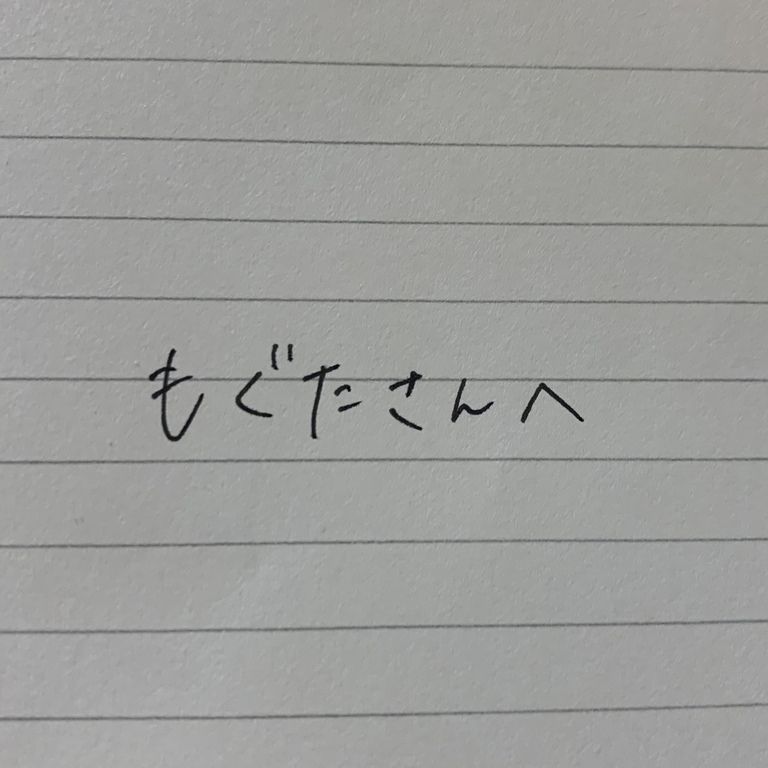 もぐたさんへ